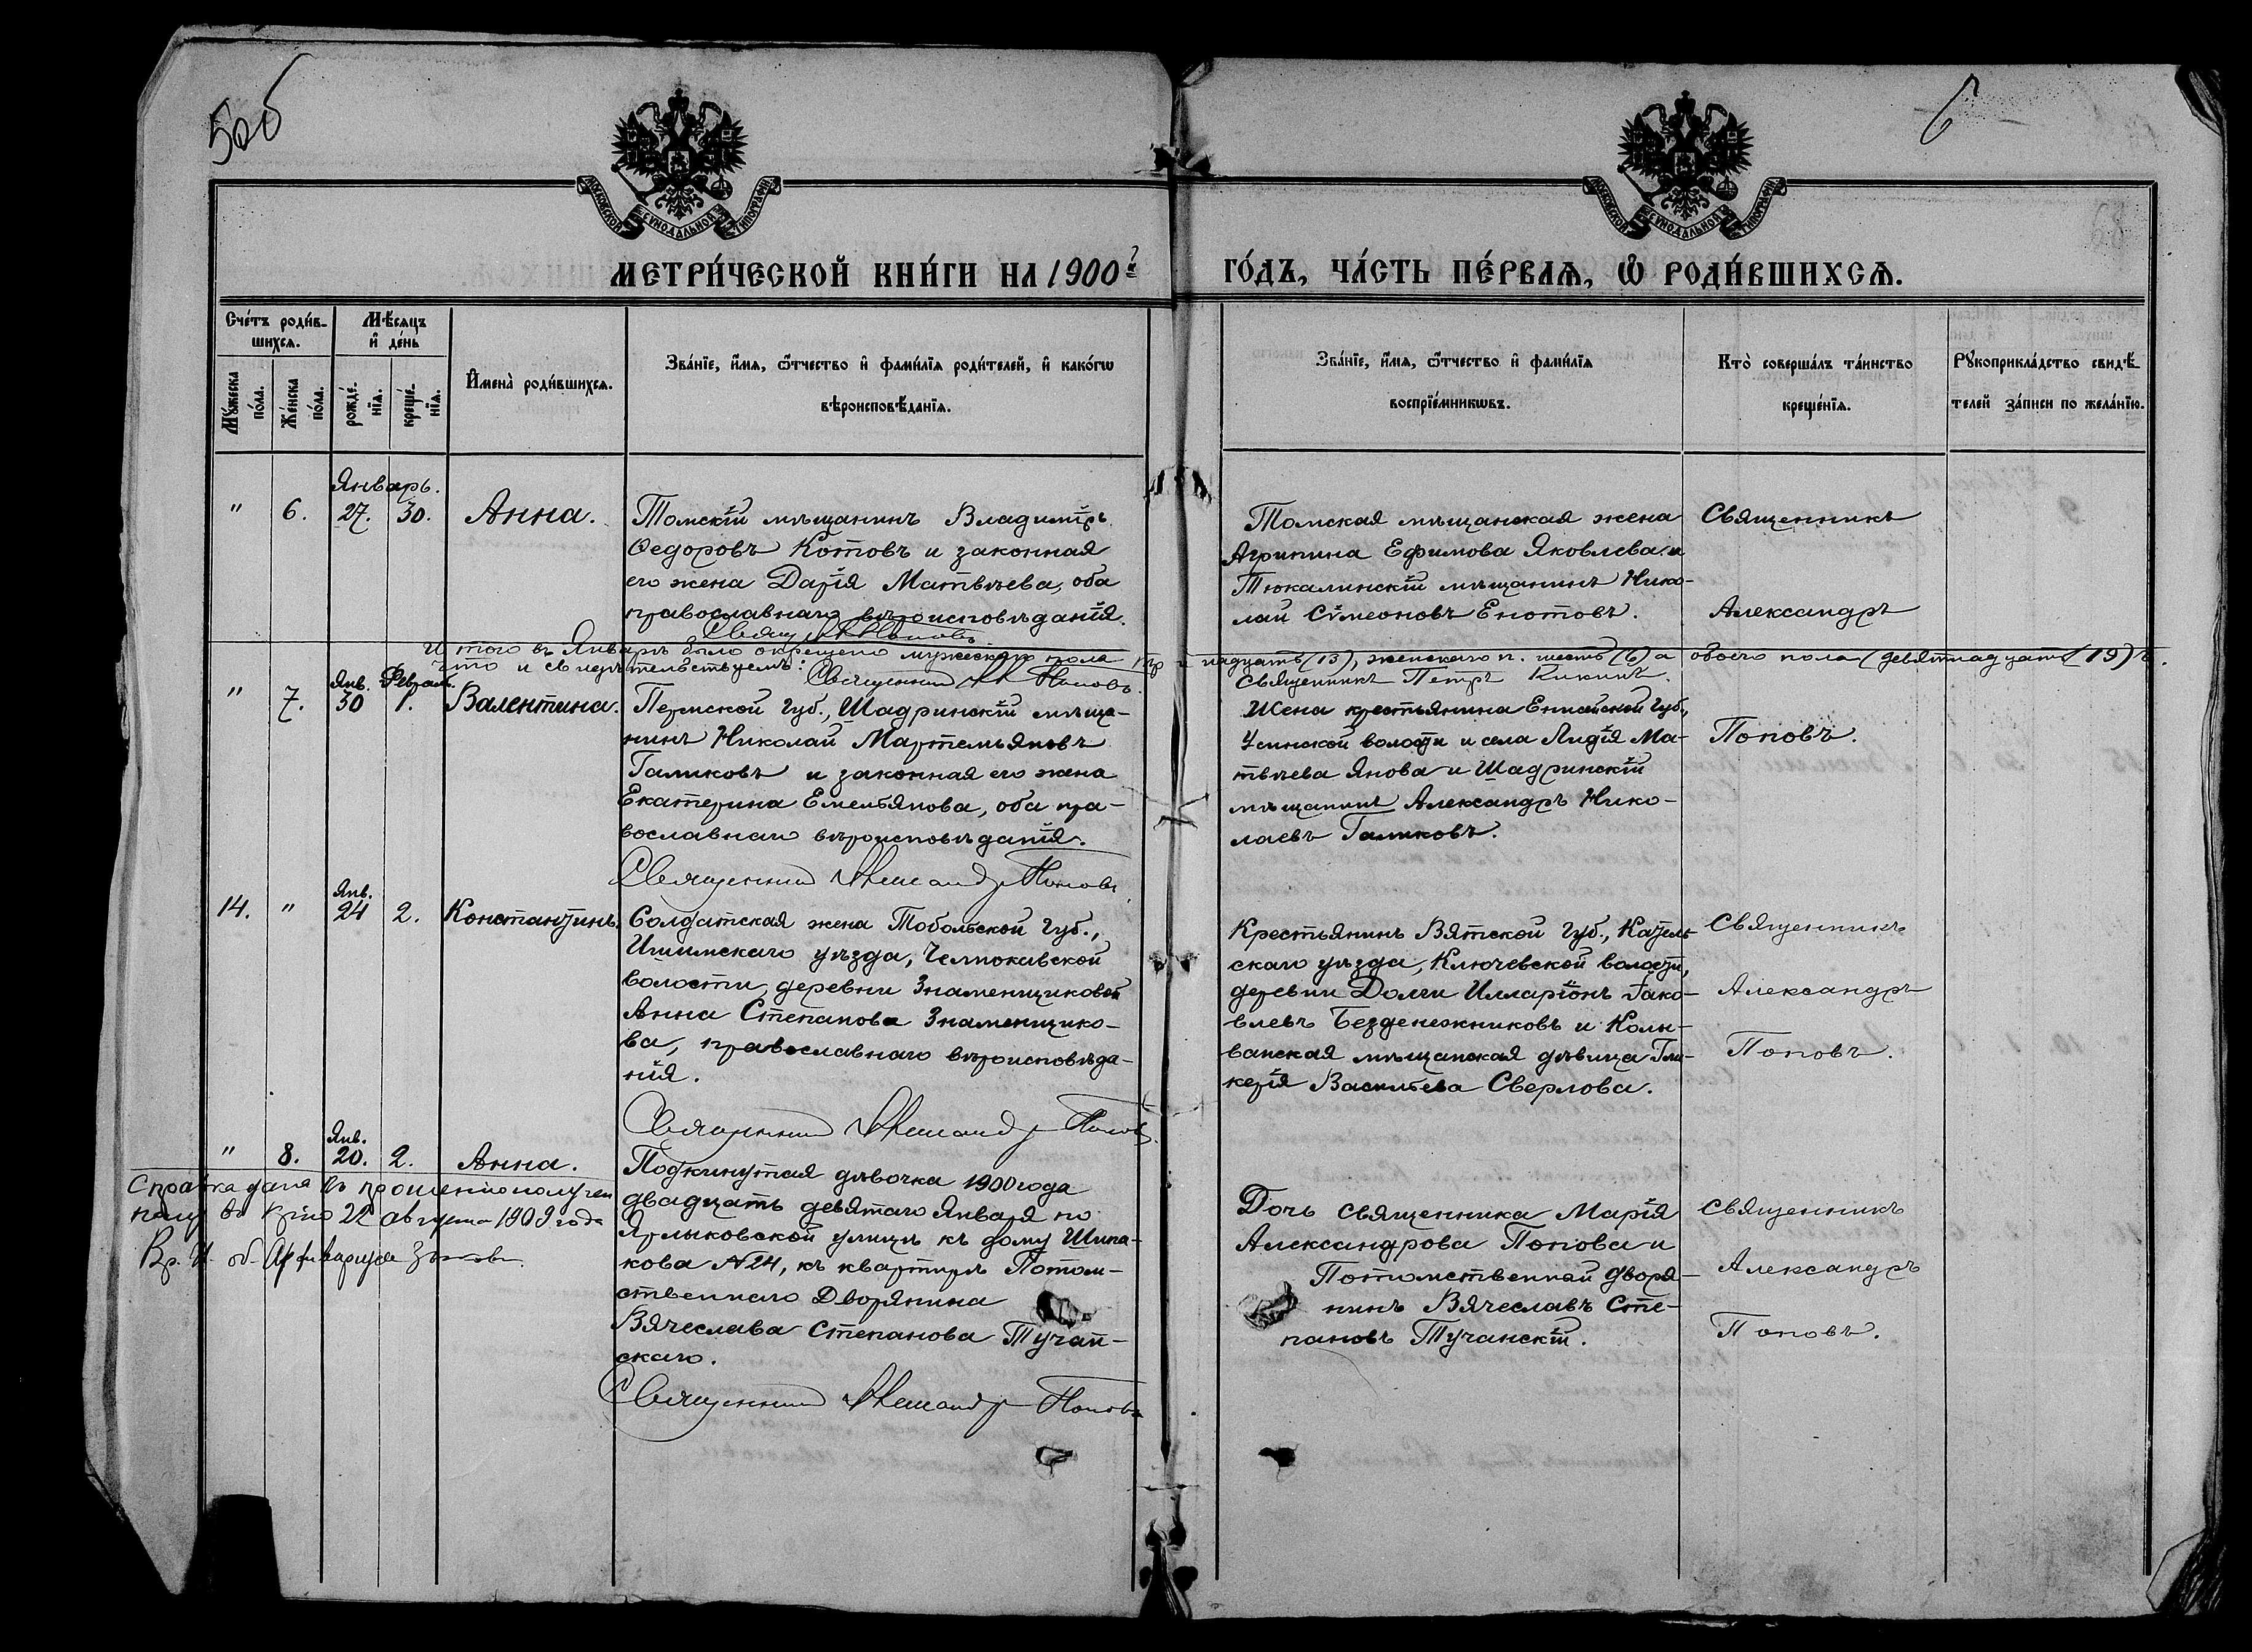 5об
6
68
МОСКОВСКОЙ СѴНОДАЛЬНОЙ ТИПОГРАФІИ
МОСКОВСКОЙ СѴНОДАЛЬНОЙ ТИПОГРАФІИ
МЕТРИ́ЧЕСКОЙ КНИ́ГИ НА 1900й
ГО́ДЪ, ЧА́СТЬ ПЕ́РВАѦ, Ѡ҆ РОДИ́ВШИХСѦ.
Сче́тъ роди́в-
шихсѧ.
Мѣ́сѧцъ
и҆ де́нь
Мꙋ́жеска
по́ла.
Же́нска
по́ла.
рожде́-
нїѧ.
креще́-
нїѧ.
И҆мена̀ роди́вшихсѧ.
Зва́нїе, и҆́мѧ, ѻ҆́тчество и҆ фами́лїѧ роди́телей, и҆ како́гѡ
вѣроисповѣ́данїѧ.
Зва́нїе, и҆́мѧ, ѻ҆́тчество и҆ фами́лїѧ
воспрїе́мникѡвъ.
Кто̀ соверша́лъ та́инство
креще́нїѧ.
Рꙋкоприкла́дство свидѣ́-
телей за́писи по жела́нїю.
Январь.
" 6. 27. 30. Анна.
Томскій мѣщанинъ Владиміръ
Ѳедоровъ Котовъ и законная
его жена Дарія Матвѣева, оба
православнаго вѣроисповѣданія.
Свящ. А Поповъ
Томская мѣщанская жена
Агрипина Ефимова Яковлева и
Тюкалинскій мѣщанинъ Нико-
лай Сѵмеоновъ Енотовъ.
Священникъ
Александръ
Итого въ Январѣ было окрещено мужескаго пола три
надцать (13), женскаго п. шесть (6) а обоего пола (девятнадцать (19) ъ.
что и свидѣтельствуемъ: Священник А Поповъ.
Священникъ Петръ Кикинъ.
Янв. Февраль.
" 7. 30 1. Валентина.
Пермской губ., Шадринскій мѣща-
нинъ Николай Мартемьяновъ
Галиковъ и законная его жена
Екатерина Емельянова, оба пра-
вославнаго вѣроисповѣданія.
Священник Александр Поповъ
Жена крестьянина Енисейской губ.,
Усинской волости и села Лидія Ма-
твѣева Янова и Шадринскій
мѣщанинъ Александръ Нико-
лаевъ Галиковъ.
Поповъ.
Янв.
14. " 24 2. Константинъ.
Солдатская жена Тобольской губ.,
Ишимскаго уѣзда, Челноковской
волости, деревни Знаменщиковой
Анна Степанова Знаменщико-
ва, православнаго вѣроисповѣда-
нія.
Священник Александр Поповъ
Крестьянинъ Вятской губ., Котель-
скаго уѣзда, Ключевской волости,
деревни Долги Илларіонъ Іако-
влевъ Безденежниковъ и Колы-
ванская мѣщанская дѣвица Гли-
керія Васильева Сверлова.
Священникъ
Александръ
Поповъ.
Янв.
" 8. 20. 2. Анна.
Подкинутая дѣвочка 1900 года
двадцать девятаго Января по
Ярлыковской улицѣ къ дому Шипа-
кова №24, къ квартирѣ Потом-
ственнаго Дворянина
Вячеслава Степанова Тучан-
скаго.
Священник Александр Поповъ
Дочь священника Марія
Александрова Попова и
Потомственный дворя-
нинъ Вячеславъ Сте-
пановъ Тучанскій.
Священникъ
Александръ
Поповъ.
Справка дана въ прошенію получен
22 августа 1909 года
Вр. И. об. Архиваріуса